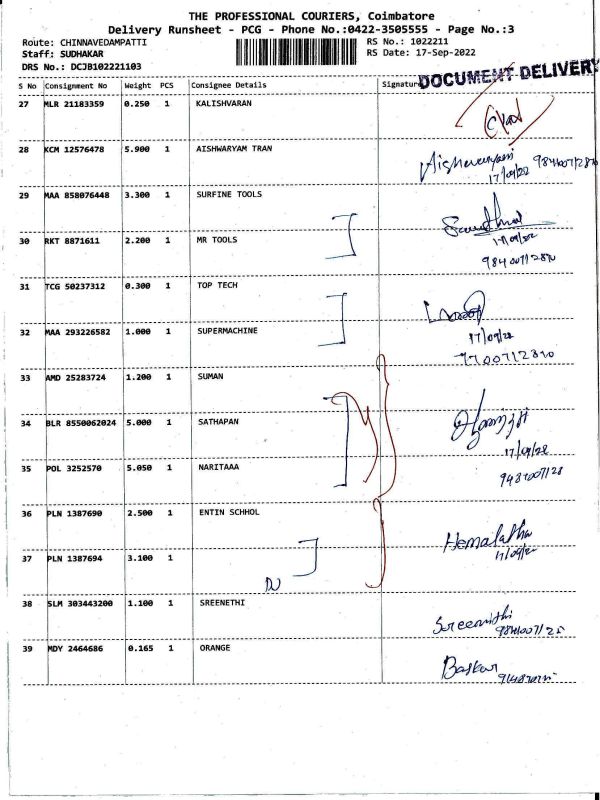 THE PROFESSIONAL COURIERS, Coimbatore
Delivery Runsheet - PCG - Phone No.:0422-3505555 - Page No.:3
Route: CHINNAVEDAMPATTI RS No.: 1022211
Staff: SUDHAKAR RS Date: 17-Sep-2022
DRS No.: DCJB102221103
DOCUMENT DELIVERY
S No Consignment No Weight PCS Consignee Details Signature
27 MLR 21183359 0.250 1 KALISHVARAN
28 KCM 12576478 5.900 1 AISHWARYAM TRAN
17/09/22
29 MAA 858076448 3.300 1 SURFINE TOOLS
17/09/22
30 RKT 8871611 2.200 1 MR TOOLS
31 TCG 50237312 0.300 1 TOP TECH
17/09/22
32 MAA 293226582 1.000 1 SUPERMACHINE
33 AMD 25283724 1.200 1 SUMAN
34 BLR 8550062024 5.000 1 SATHAPAN
17/09/22
35 POL 3252570 5.050 1 NARITAAA
36 PLN 1387690 2.500 1 ENTIN SCHHOL
Hemalatha
17/09/22
37 PLN 1387694 3.100 1
38 SLM 303443200 1.100 1 SREENETHI
Sreenithi
39 MDY 2464686 0.165 1 ORANGE
Baskar